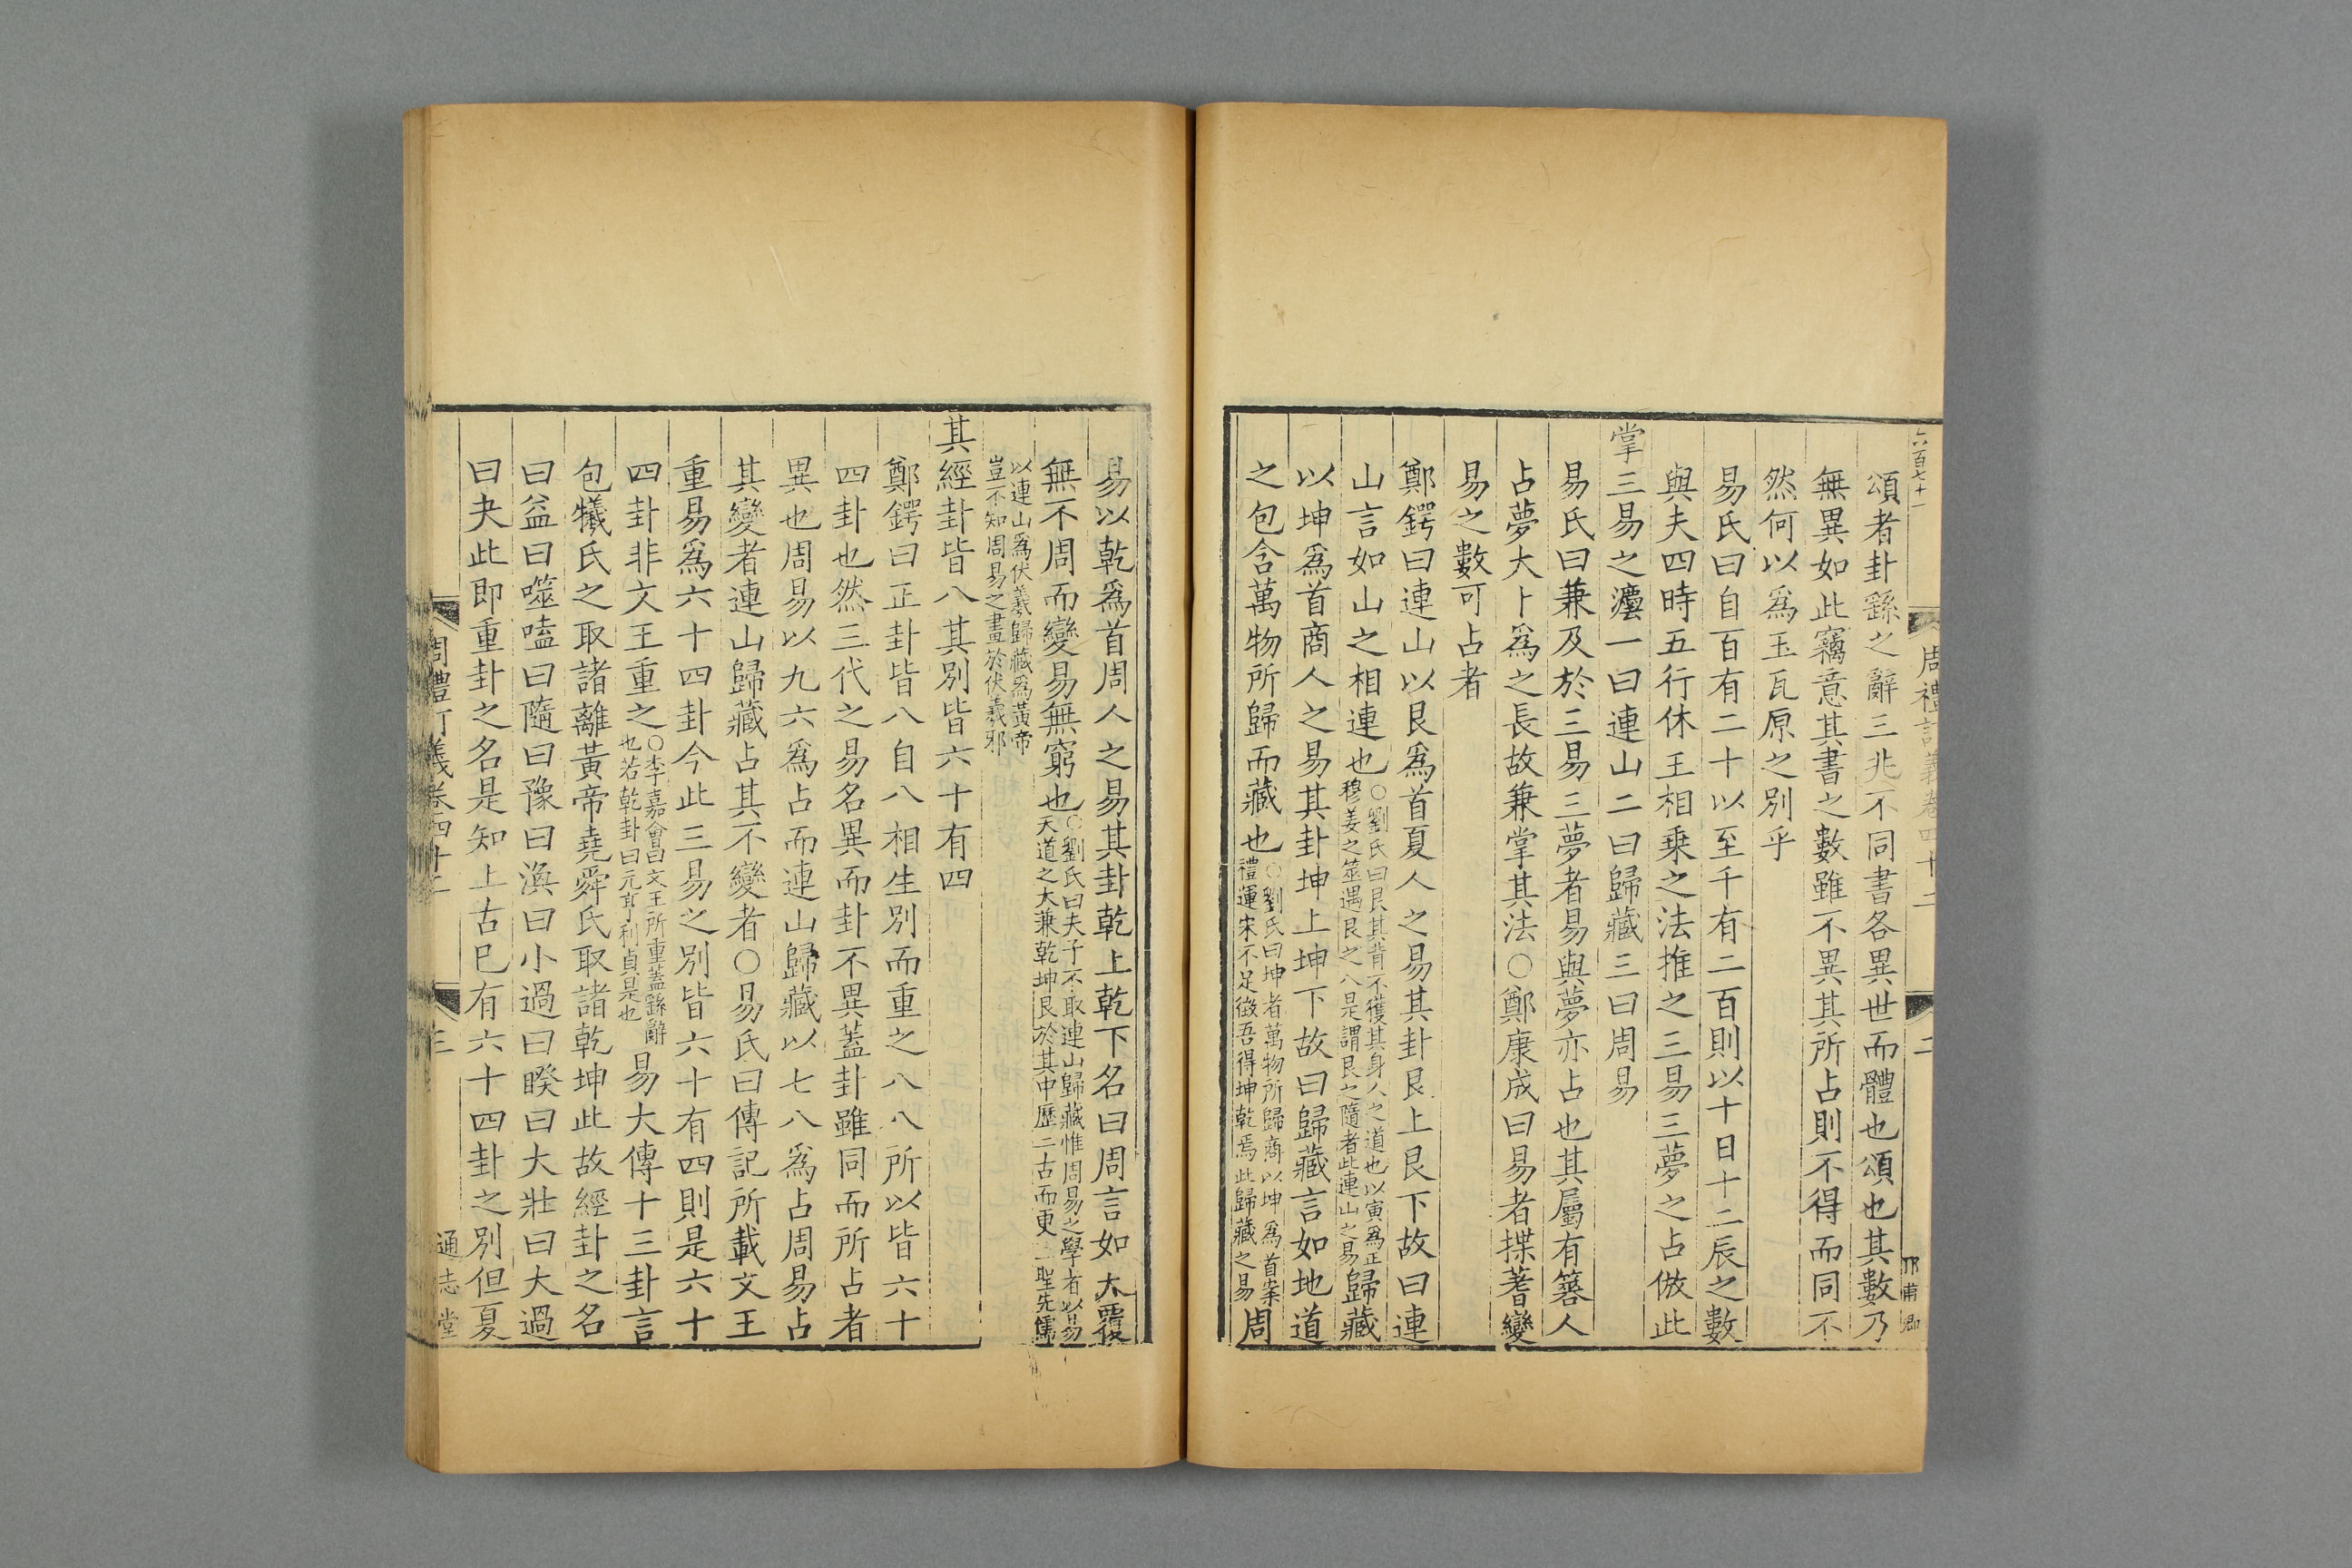 六百七十一
周禮訂義卷四十二
二
邛甫卿
頌者卦繇之辭三兆不同書各異世而體也頌也其數乃
無異如此竊意其書之數雖不異其所占則不得而同不
然何以爲玉瓦原之別乎
易氏曰自百有二十以至千有二百則以十日十二辰之數
與夫四時五行休王相乘之法推之三易三夢之占倣此
掌三易之灋一曰連山二曰歸藏三曰周易
易氏曰兼及於三易三夢者易與夢亦占也其屬有簭人
占夢大卜爲之長故兼掌其法○鄭康成曰易者揲蓍變
易之數可占者
鄭鍔曰連山以艮爲首夏人之易其卦艮上艮下故曰連
山言如山之相連也○劉氏曰艮其背不獲其身人之道也以寅爲正穆姜之筮遇艮之八是謂艮之隨者此連山之易歸藏
以坤爲首商人之易其卦坤上坤下故曰歸藏言如地道
之包含萬物所歸而藏也○劉氏曰坤者萬物所歸商以坤爲首案禮運宋不足徵吾得坤乾焉此歸藏之易周
易以乾爲首周人之易其卦乾上乾下名曰周言如天覆
無不周而變易無窮也○劉氏曰夫子不取連山歸藏惟周易之學者以易天道之大兼乾坤艮於其中歷二古而更三聖先儒
以連山爲伏羲歸藏爲黃帝豈不知周易之畫於伏羲邪
其經卦皆八其別皆六十有四
鄭鍔曰正卦皆八自八相生別而重之八八所以皆六十
四卦也然三代之易名異而卦不異蓋卦雖同而所占者
異也周易以九六爲占而連山歸藏以七八爲占周易占
其變者連山歸藏占其不變者○易氏曰傳記所載文王
重易爲六十四卦今此三易之別皆六十有四則是六十
四卦非文王重之○李嘉會曰文王所重蓋繇辭也若乾卦曰元亨利貞是也易大傳十三卦言
包犧氏之取諸離黃帝堯舜氏取諸乾坤此故經卦之名
曰益曰噬嗑曰隨曰豫曰渙曰小過曰睽曰大壯曰大過
曰夬此即重卦之名是知上古已有六十四卦之別但夏
周禮訂義卷四十二
三
通志堂